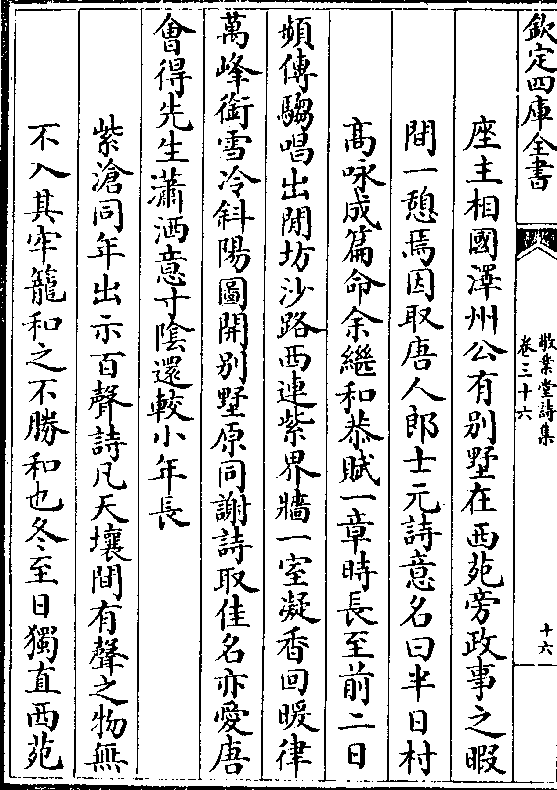 欽定四庫全書
敬業堂詩集
卷三十六
十六
座主相國澤州公有别墅在西苑旁政事之暇
間一憩焉因取唐人郎士元詩意名曰半日村
高咏成篇命余繼和恭賦一章時長至前二日
頻傳騶唱出閒坊沙路西連紫界牆一室凝香回暖律
萬峰銜雪冷斜陽圖開别墅原同謝詩取佳名亦愛唐
會得先生瀟洒意寸陰還較小年長
紫滄同年出示百聲詩凡天壤間有聲之物無
不入其牢籠和之不勝和也冬至日獨直西苑